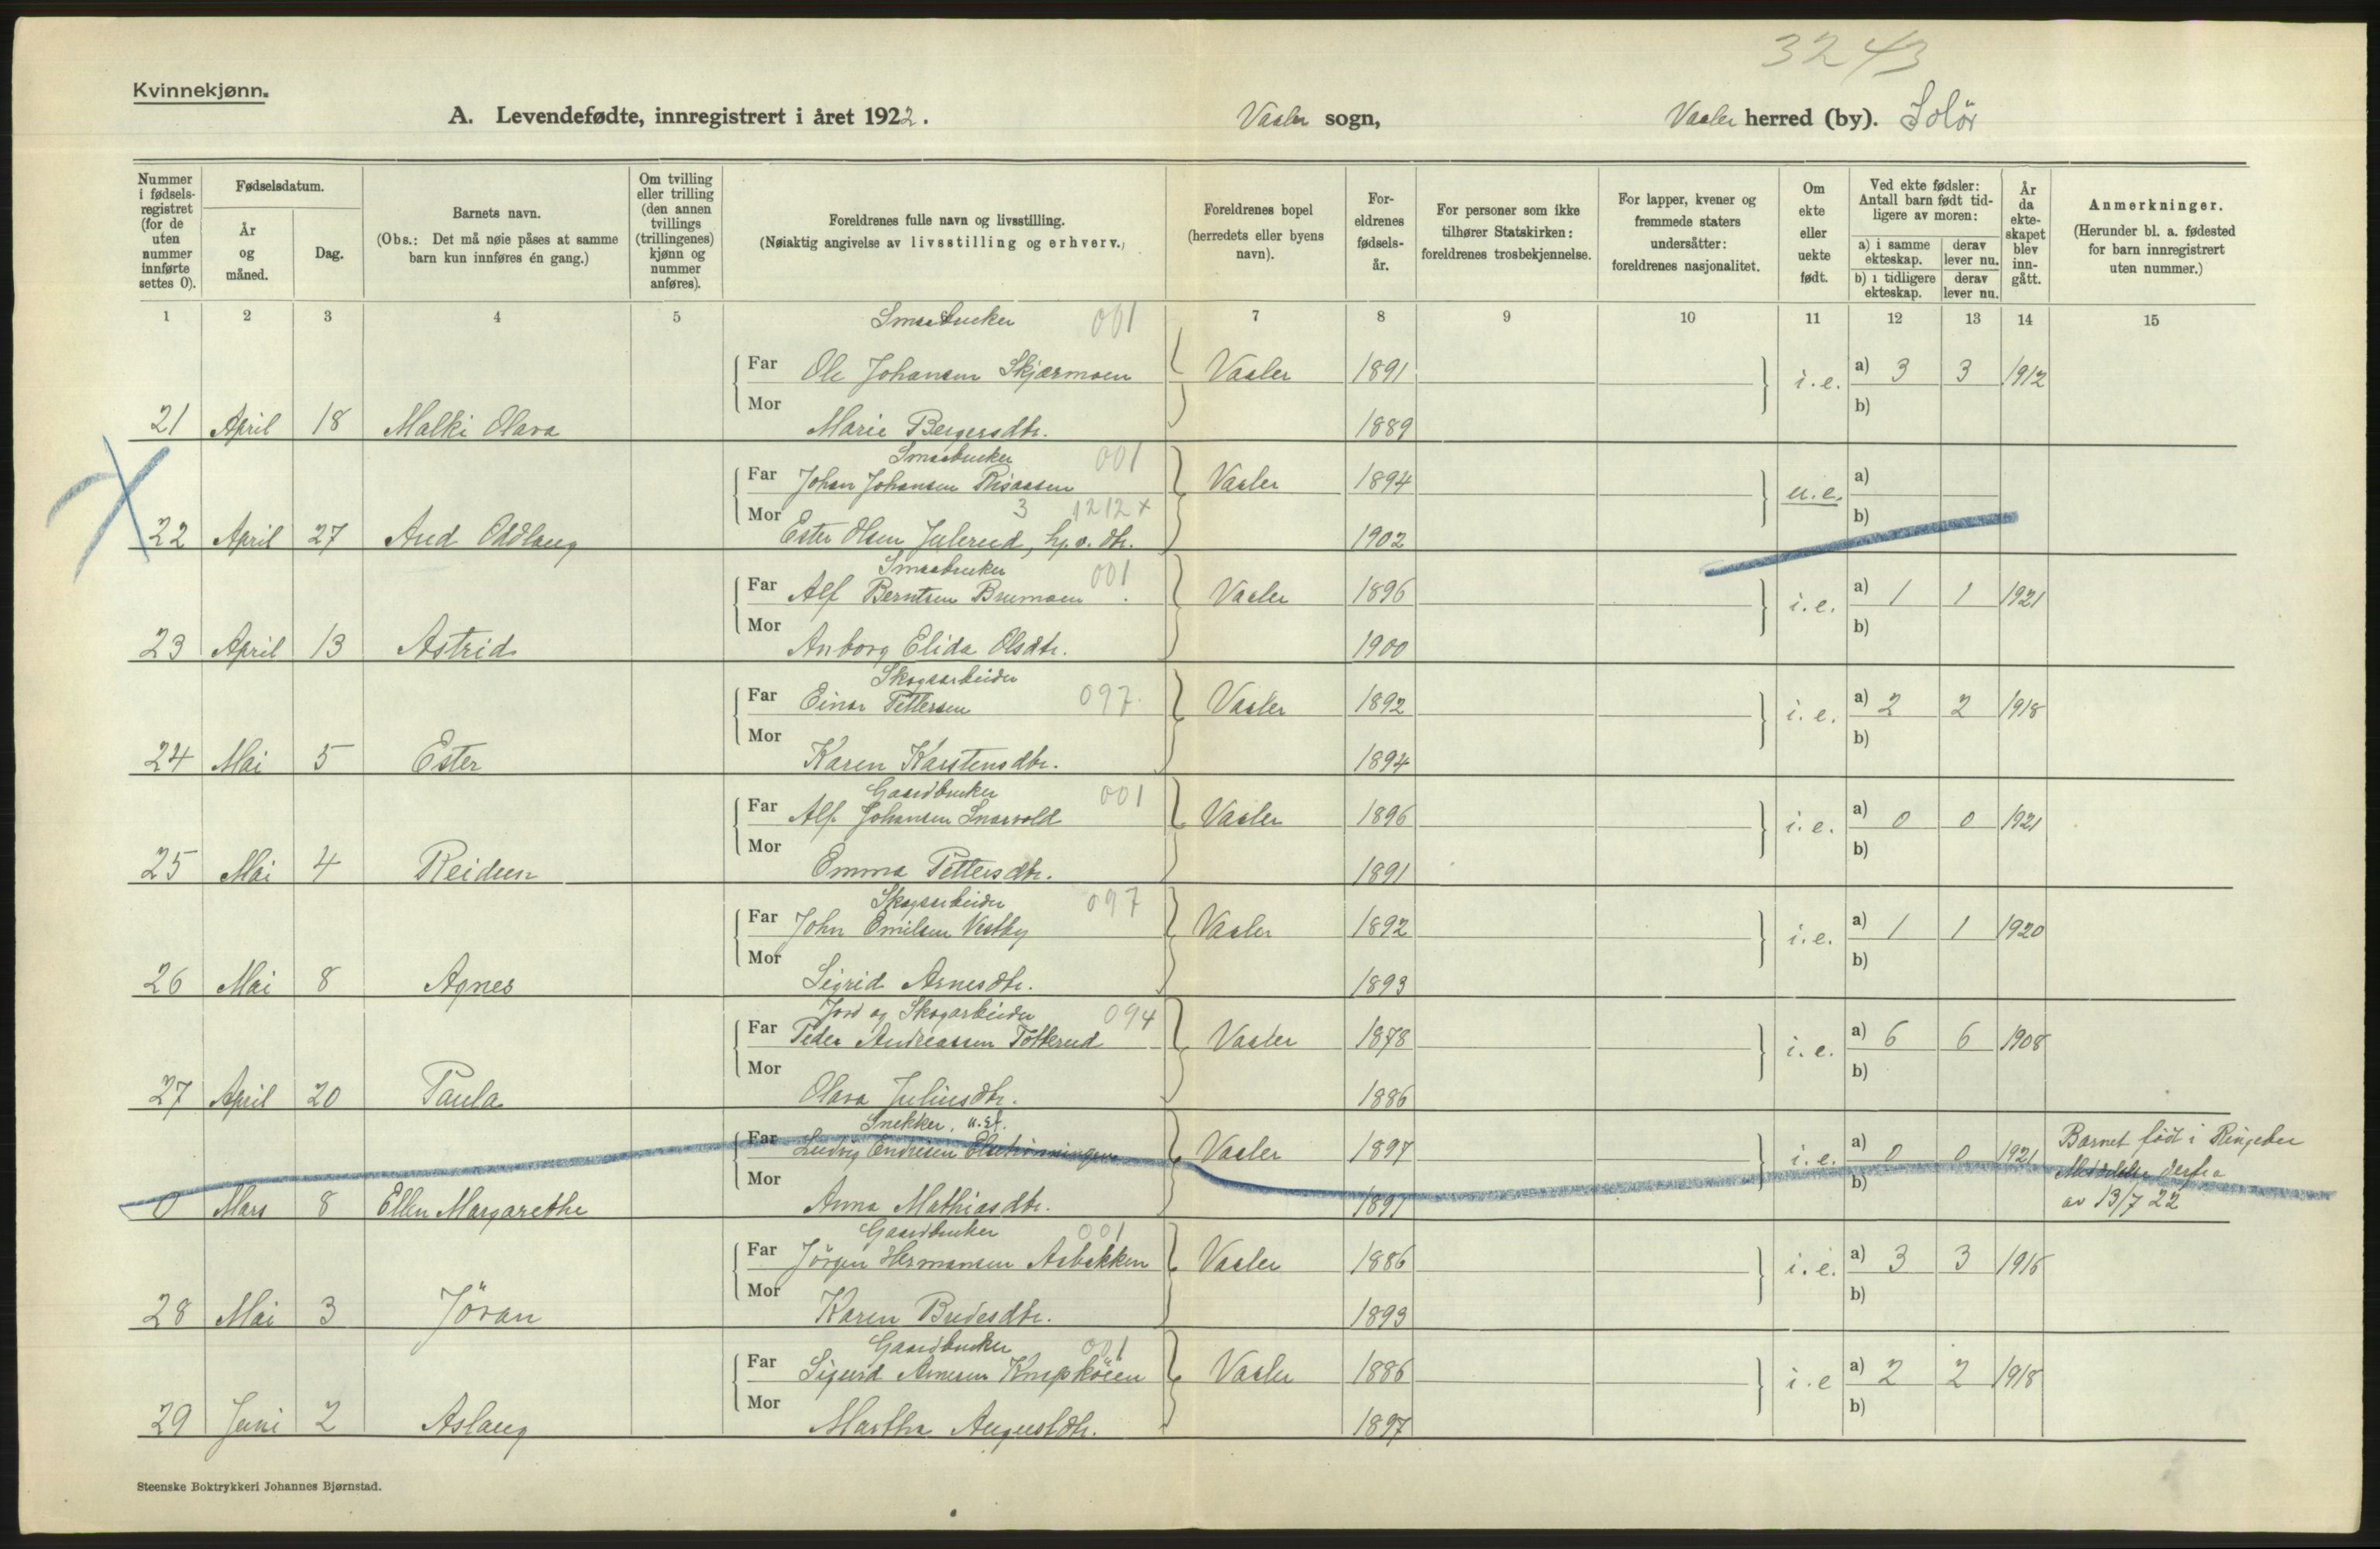 3243
Kvinnekjønn.
A. Levendefødte, innregistrert i året 1922. Vaaler sogn, Vaaler herred (by). Solör
Nummer i fødsels-registret (for de uten nummer innførte settes 0). Fødselsdatum. År og måned. Dag. Barnets navn. (Obs.: Det må nøie påses at samme barn kun innføres én gang.) Om tvilling eller trilling (den annen tvillings (trillingenes) kjønn og nummer anføres). Foreldrenes fulle navn og livsstilling. (Nøiaktig angivelse av livsstilling og erhverv.) Foreldrenes bopel (herredets eller byens navn). For-eldrenes fødsels-år. For personer som ikke tilhører Statskirken: foreldrenes trosbekjennelse. For lapper, kvener og fremmede staters undersåtter: foreldrenes nasjonalitet. Om ekte eller uekte født. Ved ekte fødsler: Antall barn født tid-ligere av moren: a) i samme ekteskap. derav lever nu. b) i tidligere ekteskap. derav lever nu. År da ekte-skapet blev inn-gått. Anmerkninger. (Herunder bl. a. fødested for barn innregistrert uten nummer.)
1 2 3 4 5 7 8 9 10 11 12 13 14 15
Smaabruker 001
Far Ole Johansen Skjærmoen Vaaler 1891 i.e. a) 3 3 1912
Mor b)
21 April 18 Malki Olava Marie Bergersdtr. 1889
Smaabruker 001
Far Johan Johansen Risaasen Vaaler 1894 u.e. a)
Mor 3 1212 x b)
22 April 27 Aud Oddlaug Ester Olsen Julerud, hp.o. dtr. 1902
Smaabruker 001
Far Alf Berntsen Brumoen Vaaler 1896 i.e. a) 1 1 1921
Mor b)
23 April 13 Astrid Anborg Elida Olsdtr. 1900
Skogsarbeider
Far Einar Pettersen 097 Vaaler 1892 i.e. a) 2 2 1918
Mor b)
24 Mai 5 Ester Karen Karstensdtr. 1894
Gaardbruker 001
Far Alf Johansen Snarvold Vaaler 1896 i.e. a) 0 0 1921
Mor b)
25 Mai 4 Reidun Emma Pettersdtr. 1891
Skogsarbeider 097
Far John Emilsen Vestby Vaaler 1892 i.e. a) 1 1 1920
Mor b)
26 Mai 8 Agnes Sigrid Arnesdtr. 1893
Jord og Skogarbeider 094
Far Peder Andreassen Tolkerud Vaaler 1878 i.e. a) 6 6 1908
Mor b)
27 April 20 Paula Olava Juliusdtr. 1886
Snekker. u.st.
Far Ludvig Endresen Vaaler 1897 i.e. a) 0 0 1921 Barnet född i Ringebu
Mor b) Meddelelse derfra
0 Mars 8 Ellen Margarethe Anna Mathiasdtr. 1897 av 13/7 22
Gaardbruker 001
Far Jörgen Hermansen Asbakken Vaaler 1886 i.e. a) 3 3 1916
Mor b)
28 Mai 3 Jöran Karen Bredesdtr. 1893
Gaardbruker 001
Far Sigurd Arnesen Knapköien Vaaler 1886 i.e a) 2 2 1918
Mor b)
29 Juni 2 Aslaug Martha Augustdtr. 1897
Steenske Boktrykkeri Johannes Bjørnstad.